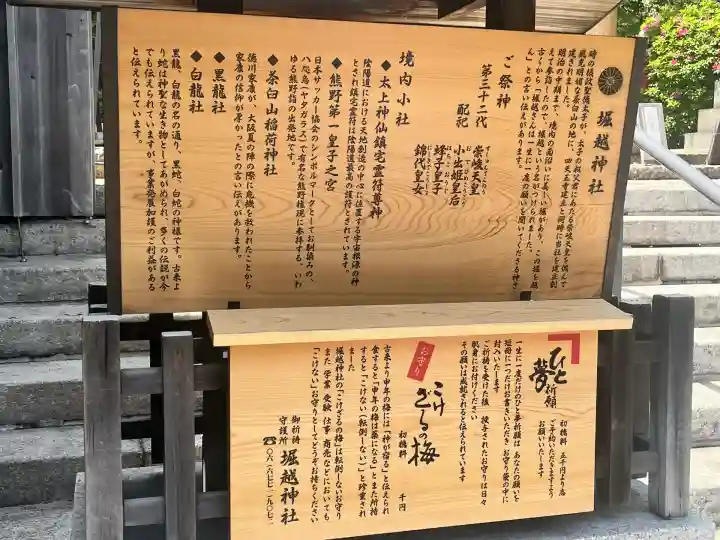 堀越神社
時の摂政聖徳太子が、太子の叔父君にあたる崇峻天皇を偲んで
風光明媚な茶臼山の地に、四天王寺建立と同時に当社を建立創
建されました。
明治の中期まで、境内の南沿いに美しい堀があり、この堀を越
えて参詣したので、堀越という名がつけられました。
古くから「堀越さんは一生に一度の願いを聞いてくださる神さ
ん」との言い慣わしがあります。
ご祭神
第三十二代 崇峻天皇
配祀 小出姫皇后
蜂子皇子
錦代皇女
境内小社
◆太上神仙鎮宅霊符尊神
陰陽道における天地創造の中心に位置する宇宙根源の神
とされ鎮宅霊符は陰陽道最高の護符とされています。
◆熊野第一皇子之宮
日本サッカー協会のシンボルマークとしてお馴染みの、
八咫烏(ヤタガラス)で有名な熊野権現に参拝する、いわ
ゆる熊野詣の出発地です。
◆茶臼山稲荷神社
徳川家康が、大阪夏の陣の際に危機を救われたことから
家康の信仰が厚かったとの言い伝えがあります。
◆黒龍社
◆白龍社
黒龍、白龍の名の通り、黒蛇、白蛇の神様です。古来よ
り蛇は神聖な生き物としてあがめられ、多くの伝説が今
でも伝えられていますが、事業発展加護のご利益がある
と伝えられています。
ひと夢祈願
初穂料 五千円より志
ご予約いただきますよう
お願いいたします
一生に一度だけのひと夢祈願は あなたの願いを
短冊に一つだけお書きいただき お守り袋の中に
封入いたします
ご祈祷を受けた後 授与されたお守りは日々
肌身にお付けください
その願いは成就されると伝えられています
お守り
こけざるの梅
初穂料 千円
古来より申年の梅には「神が宿る」と伝えられ
食すると「申年の梅は薬になる」とまた所持
すると「こけない(転倒しない)」と珍重され
ました
堀越神社の「こけざるの梅」は転倒しないお守り
また 学業 受験 仕事 商売などにおいても
「こけない」お守りとしてどうぞお持ちください
御祈祷
守護所 堀越神社
☎〇六-六七七一-九〇七二